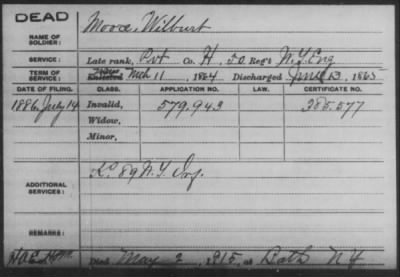 DEAD
NAME OF SOLDIER: Moore, Wilburt
SERVICE: Late rank, Pvt Co. H, 50 Reg't N.Y. Eng
TERM OF SERVICE: Enlisted Mch 11, 1864 Discharged June 13, 1865
DATE OF FILING. CLASS. APPLICATION NO. LAW. CERTIFICATE NO.
1886, July 14 Invalid, 579,943 385,577
Widow,
Minor,
ADDITIONAL SERVICES: 89 N.Y. Inf.
REMARKS:
Died May 2, 1915, at Bath N Y